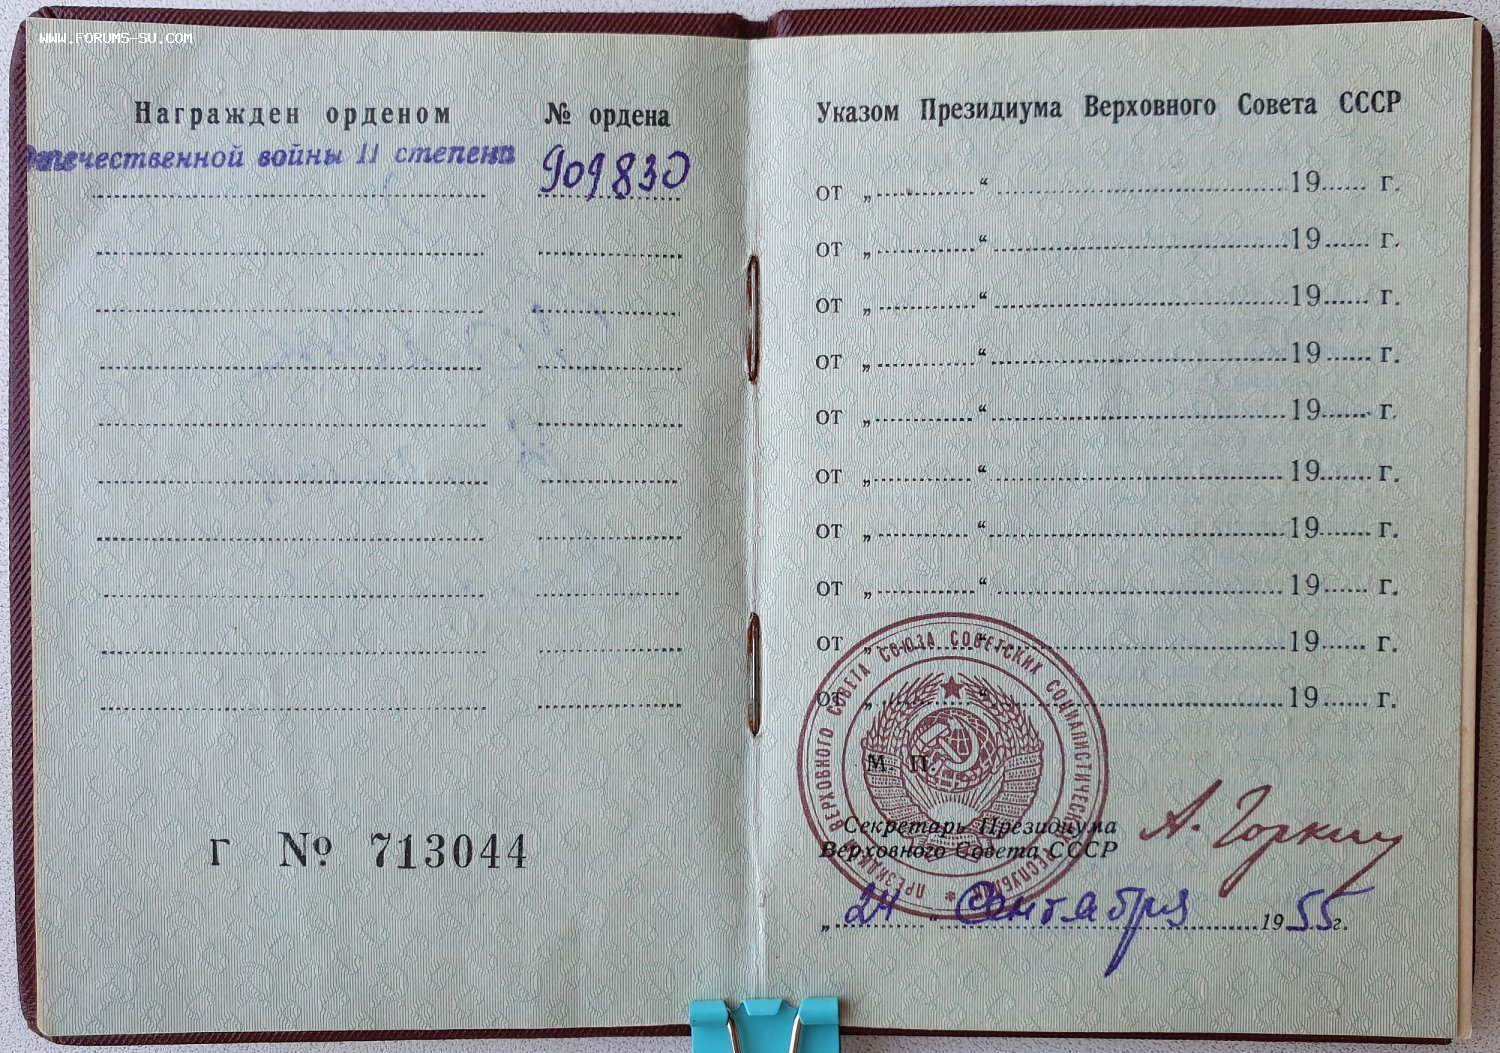 WWW.FORUMS-SU.COM
Награжден орденом
№ ордена
Отечественной войны II степени
909830
Г № 713044
Указом Президиума Верховного Совета СССР
от „ “ 19 г.
от „ “ 19 г.
от „ “ 19 г.
от „ “ 19 г.
от „ “ 19 г.
от „ “ 19 г.
от „ “ 19 г.
от „ “ 19 г.
от „ “ 19 г.
от „ “ 19 г.
ПРЕЗИДИУМ ВЕРХОВНОГО СОВЕТА СОЮЗА СОВЕТСКИХ СОЦИАЛИСТИЧЕСКИХ РЕСПУБЛИК
М. П.
Секретарь Президиума
Верховного Совета СССР
А. Горкин
„24“ Сентября 1955 г.